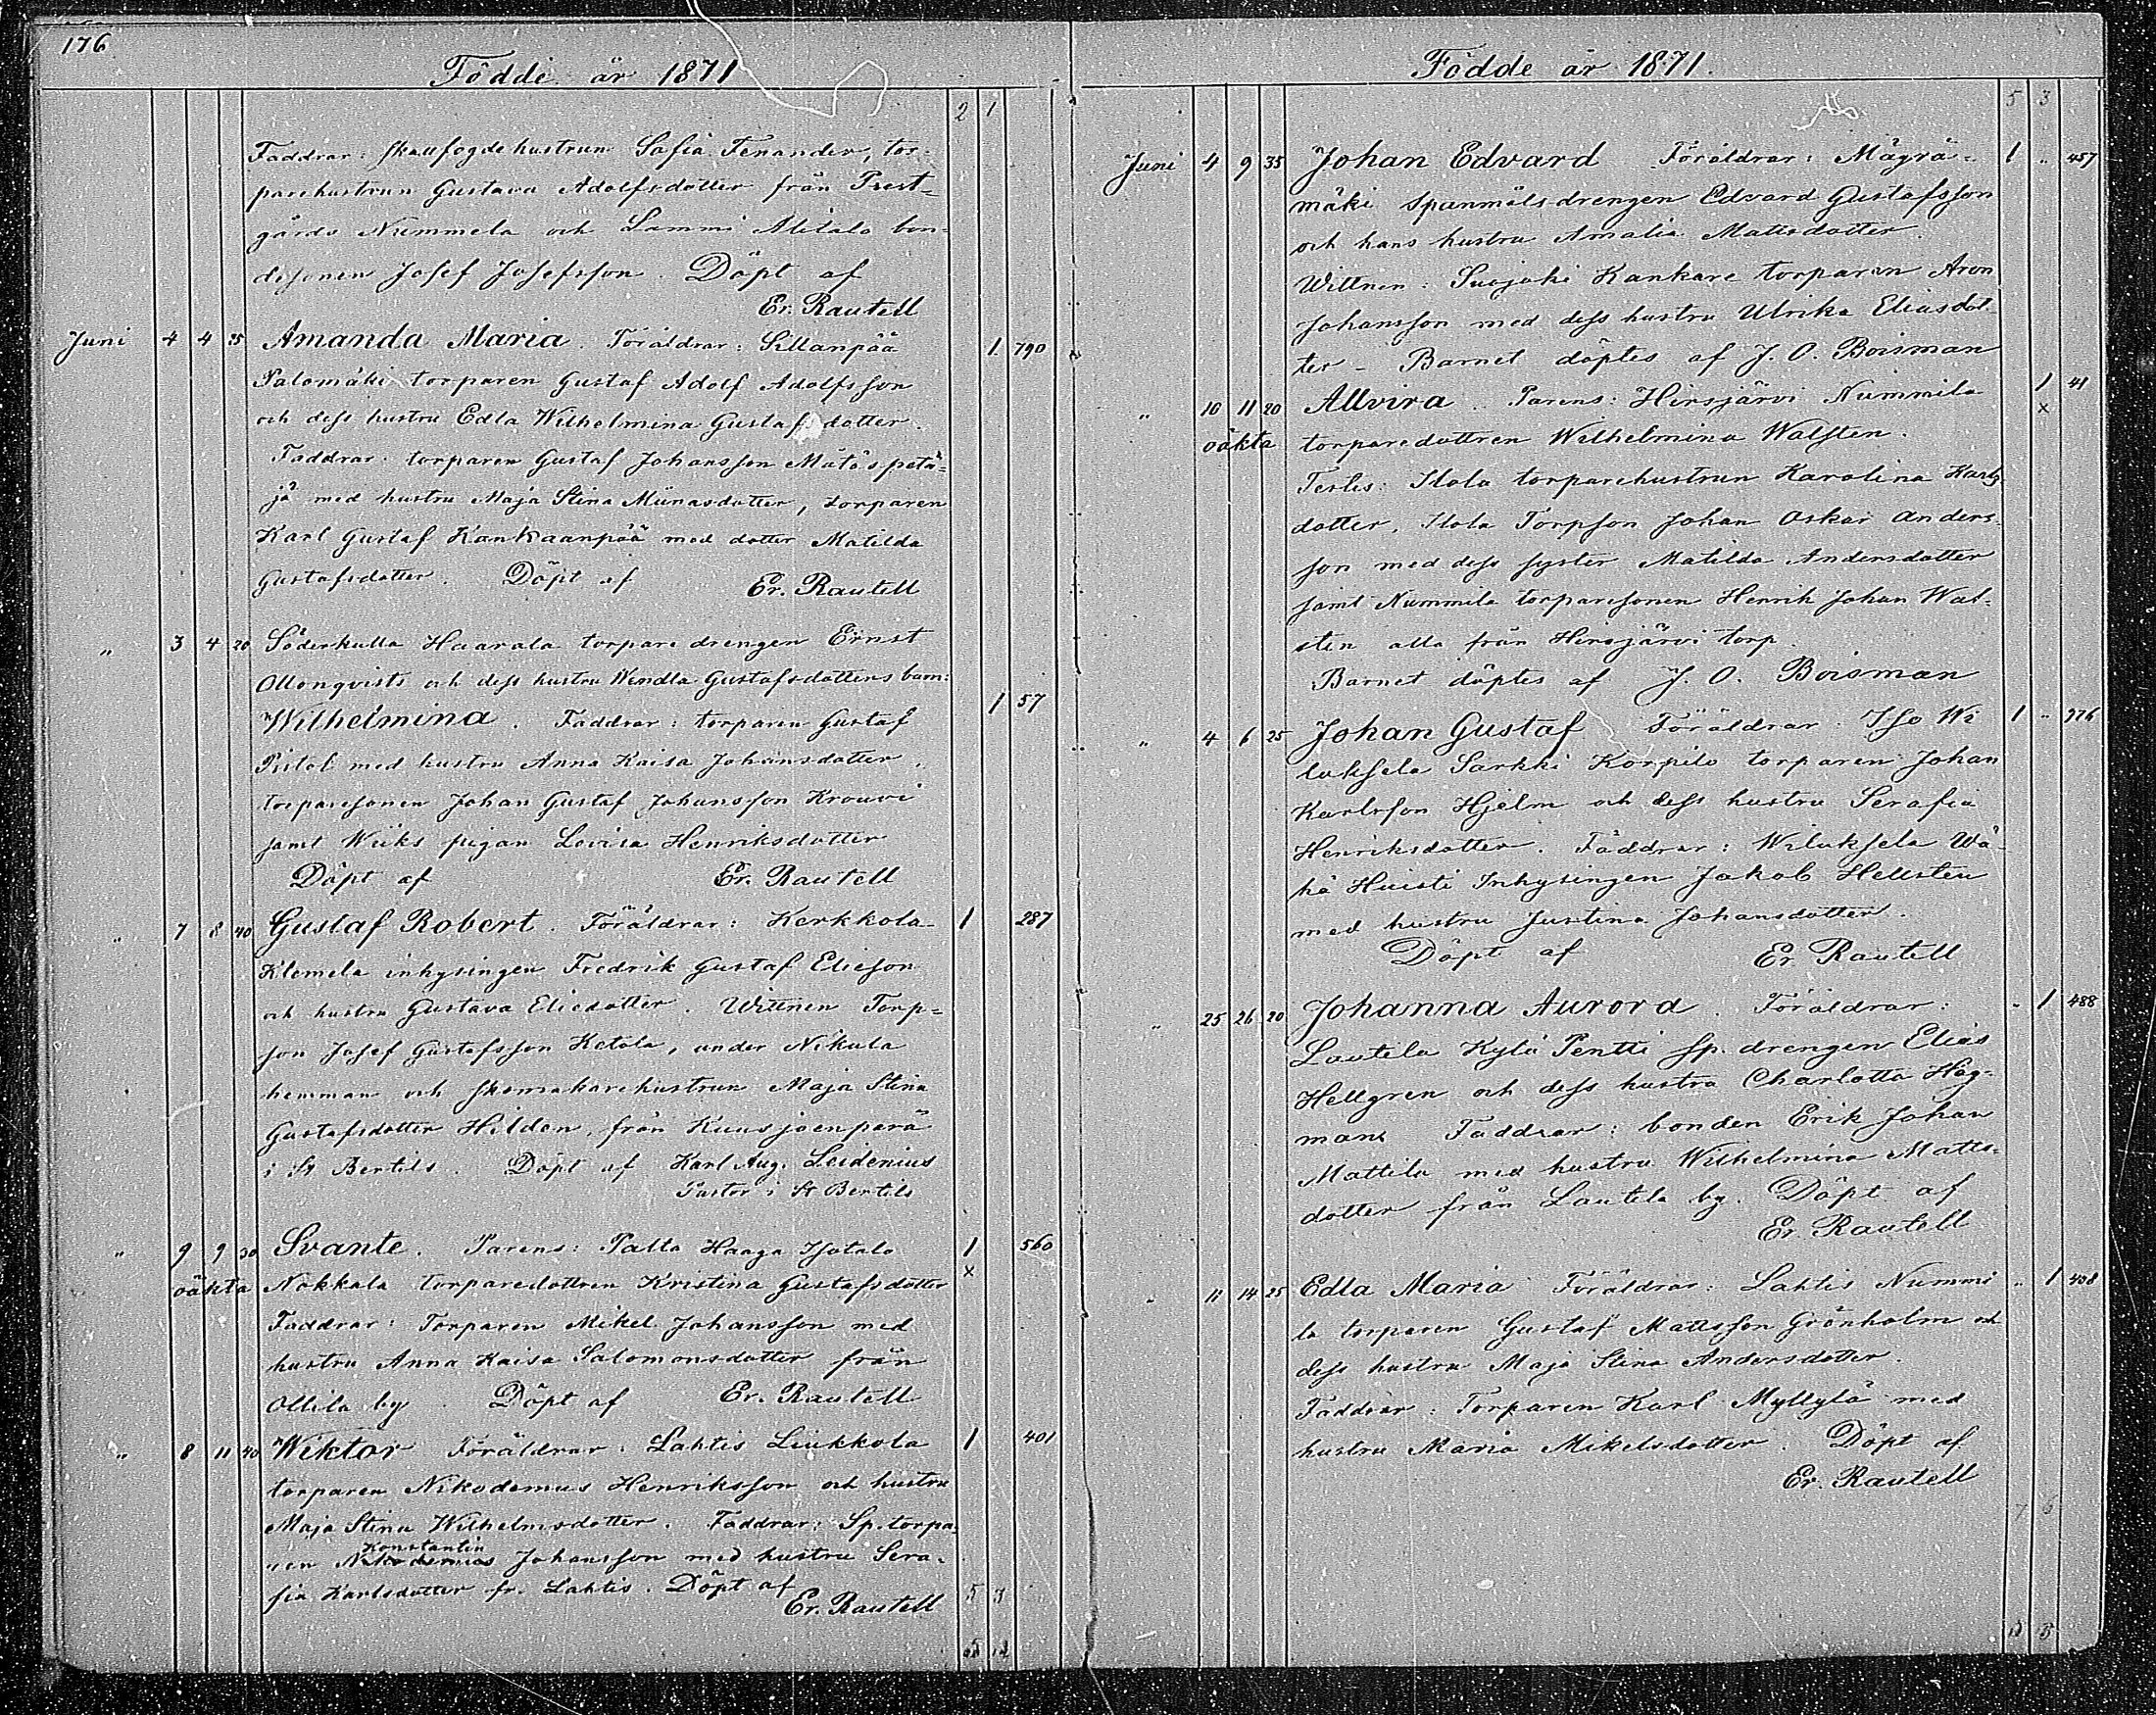 176
Födde år 1871
2 1
Faddrar: skallfogdehustrun Sofia Fenander, tor-
parehustrun Gustava Adolfsdotter från Prest-
gårds Nummela och Lammi Alitalo bon-
desonen Josef Josefsson. Döpt af
Er. Rautell
Juni 4 4 35 Amanda Maria. Föräldrar: Sillanpää 1. 790
Palomäki torparen Gustaf Adolf Adolfsson
och dess hustru Edla Wilhelmina Gustafsdotter.
Faddrar: torparen Gustaf Johansson Mätäspetä-
jä med hustru Maja Stina Münasdotter, torparen
Karl Gustaf Kankaanpää med dotter Matilda
Gustafsdotter. Döpt af Er. Rautell
" 3 4 20 Söderkulla Haarala torpare drengen Ernst
Ollonqvists och dess hustru Wendla Gustafsdotters barn:
Wilhelmina. Faddrar: torparen Gustaf 1 57
Pistol med hustru Anna Kaisa Johansdotter,
torparesonen Johan Gustaf Johansson Krouvi
samt Wiiks pigan Lovisa Henriksdotter
Döpt af Er. Rautell
" 7 8 40 Gustaf Robert. Föräldrar: Kerkkola- 1 287
Klemela inhysingen Fredrik Gustaf Elieson
och hustru Gustava Eliedotter. Wittnen Torp-
son Josef Gustafsson Ketola, under Nikula
hemman och skomakarehustrun Maja Stina
Gustafsdotter Hilden, från Kuusjoenperä
i St Bertils. Döpt af Karl Aug. Leidenius
Pastor i St Bertils
" 9 9 30 Svante. Parens: Palta Haaga Isotalo 1 560
oäkta Nokkala torparedottren Kristina Gustafsdotter x
Faddrar: Torparen Mikel Johansson med
hustru Anna Kaisa Salomonsdotter från
Ollila by. Döpt af Er. Rautell
" 8 11 40 Wiktor Föräldrar: Lahtis Liukkola 1 401
torparen Nikodemus Henriksson och hustru
Maja Stina Wilhelmsdotter. Faddrar: Sp. torpa-
Konstantin
ren Nikodemus Johansson med hustru Sera-
fia Karlsdotter fr. Lahtis. Döpt af
Er. Rautell 5 3
Födde år 1871.
5 3
Juni 4 9 35 Johan Edvard Föräldrar: Mägrä- 1 " 457
mäki Spanmålsdrengen Edvard Gustafsson
och hans hustru Amalia Mattsdotter.
Wittnen: Suojoki Kankare torparen Aron
Johansson med dess hustru Ulrika Eliasdot-
ter - Barnet döptes af J. O. Boisman
" 10 11 20 Allvira. Parens: Hirsjärvi Nummila 1 41
oäkta torparedottren Wilhelmina Walsten. x
Testes: Idola torparehustrun Karolina Karls-
dotter, Idola Torpson Johan Oskar Anders-
son med dess syster Matilda Andersdotter
samt Nummila torparesonen Henrik Johan Wal-
sten alla från Hirsjärvi torp.
Barnet döptes af J. O. Boisman
" 4 6 25 Johan Gustaf Föräldrar. Iso Wi 1 " 976
luksela Sarkki Korpilo torparen Johan
Karlsson Hjelm och dess hustru Serafia
Henriksdotter. Faddrar: Wiluksela Wä-
hä Huisti Inhysingen Jakob Hellsten
med hustru Justina Johansdotter.
Döpt af Er. Rautell
" 25 26 20 Johanna Aurora. Föräldrar: " 1 488
Lautela Kylä Pentti sp. drengen Elias
Hellgren och dess hustru Charlotta Hag-
man. Faddrar: bonden Erik Johan
Mattila med hustru Wilhelmina Matts-
dotter från Lautela by. Döpt af
Er. Rautell
" 11 14 25 Edla Maria Föräldrar: Lahtis Nummi " 1 408
la torparen Gustaf Mattsson Grönholm och
dess hustru Maja Stina Andersdotter.
Faddrar: Torparen Karl Myllylä med
hustru Maria Mikelsdotter. Döpt af
Er. Rautell
7 6